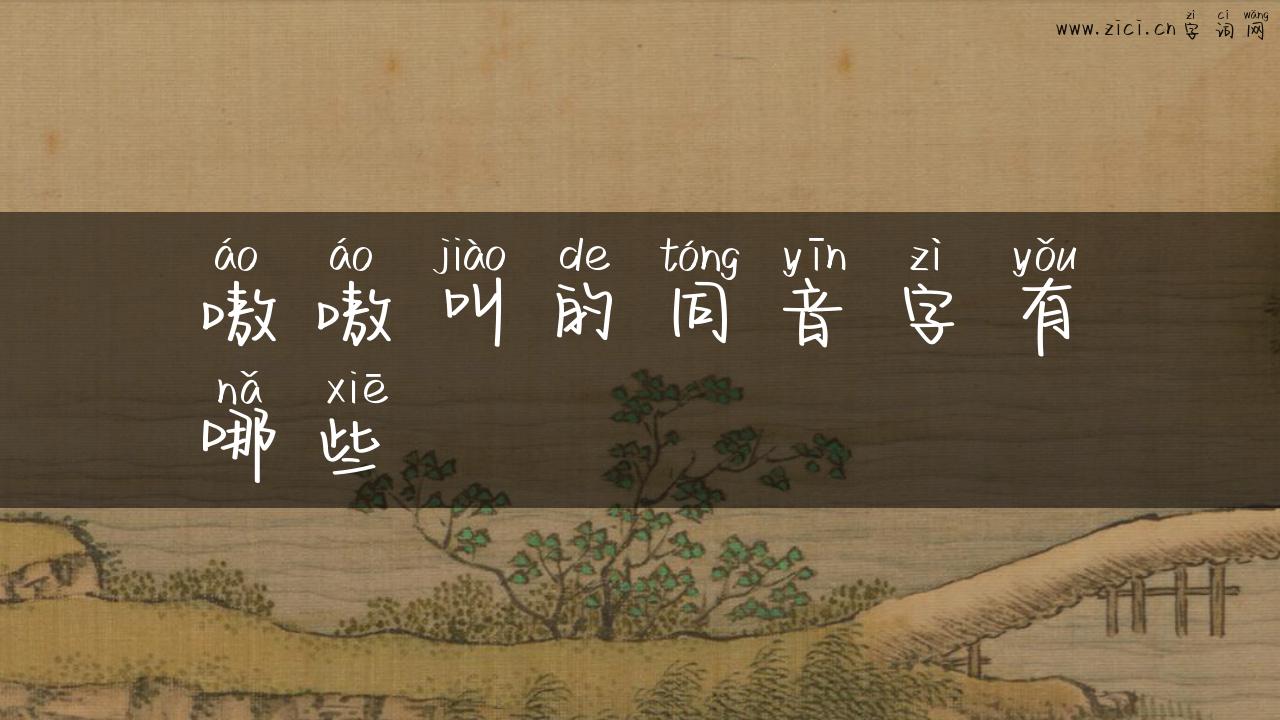 zì cí wǎng
www.zici.cn 字词网
áo áo jiào de tóng yīn zì yǒu
嗷嗷叫的同音字有
nǎ xiē
哪些